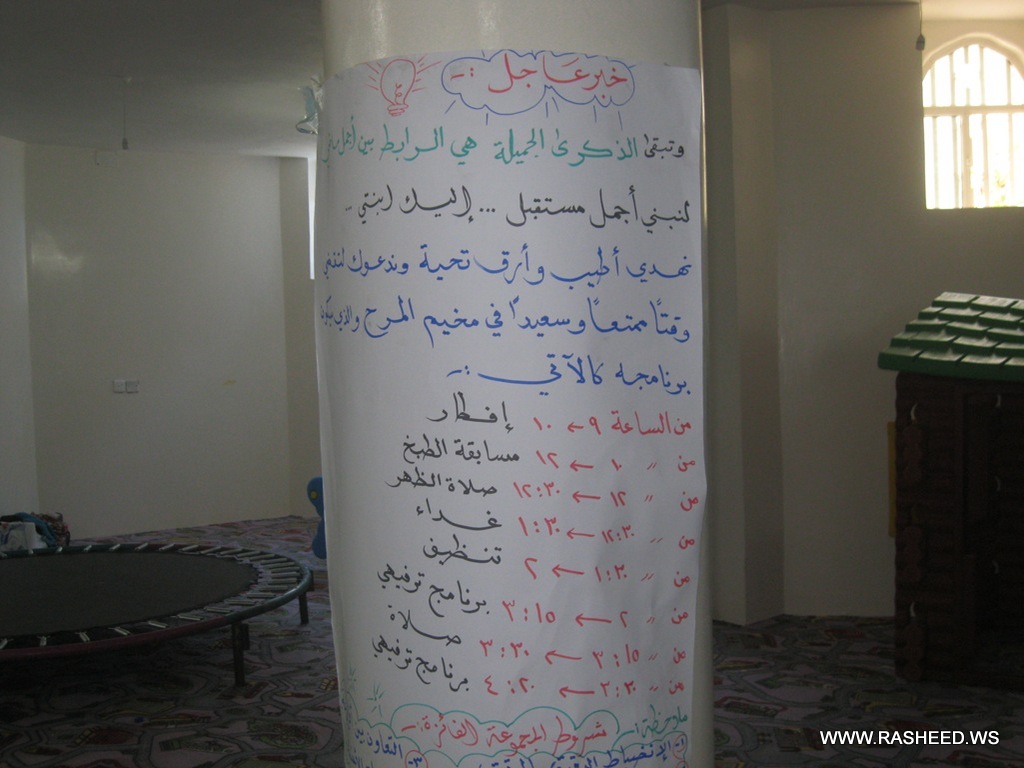 خبر عاجل :-
وتبقى الذكرى الجميلة هي الرابط بين أجمل
لنبني أجمل مستقبل ... إليك ابنتي ..
نهدي أطيب وأرق تحية وندعوك لتقضي
وقتاً ممتعاً وسعيداً في مخيم المرح والذي يكون
برنامجه كالآتي :-
من الساعة ٩ ← ١٠ إفطار
من " ١٠ ← ١٢ مسابقة الطبخ
من " ١٢ ← ١٢:٣٠ صلاة الظهر
من " ١٢:٣٠ ← ١:٣٠ غداء
من " ١:٣٠ ← ٢ تنظيف
من " ٢ ← ٣:١٥ برنامج ترفيهي
من " ٣:١٥ ← ٣:٣٠ صلاة
من " ٣:٣٠ ← ٤:٢٠ برنامج ترفيهي
ملاحظة :
شروط المجموعة الفائزة :-
١- الإنضباط
٣- التعاون بين
WWW.RASHEED.WS